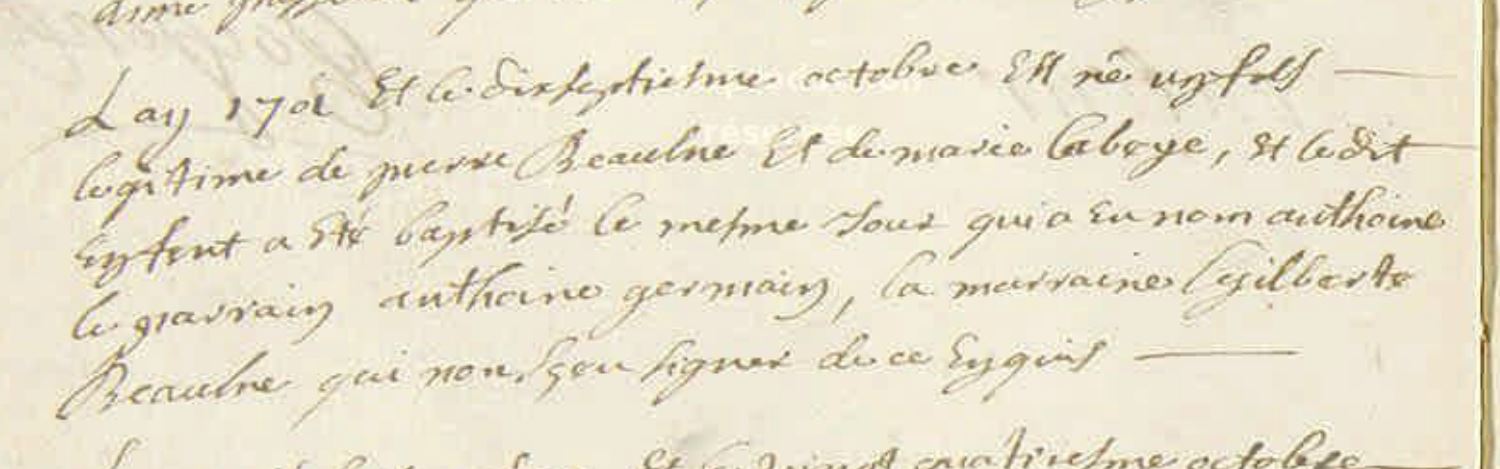 Lan 1701 Et le dixseptiesme octobre Est né un fils
legitime de pierre Beaulne Et de marie laboye, Et ledit
Enfent a Eté baptisé le mesme Jour qui a Eu nom anthoine
le parrain anthoine germain, la marraine gilberte
Beaulne qui non sçeu signer de ce Enquis
Et le vingt quatriesme octobre